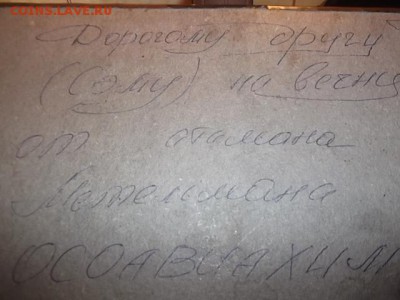 COINS.LAVE.RU
Дорогому другу
(Сэму) на вечну
от атамана
Метелмана
ОСОАВИАХИМ